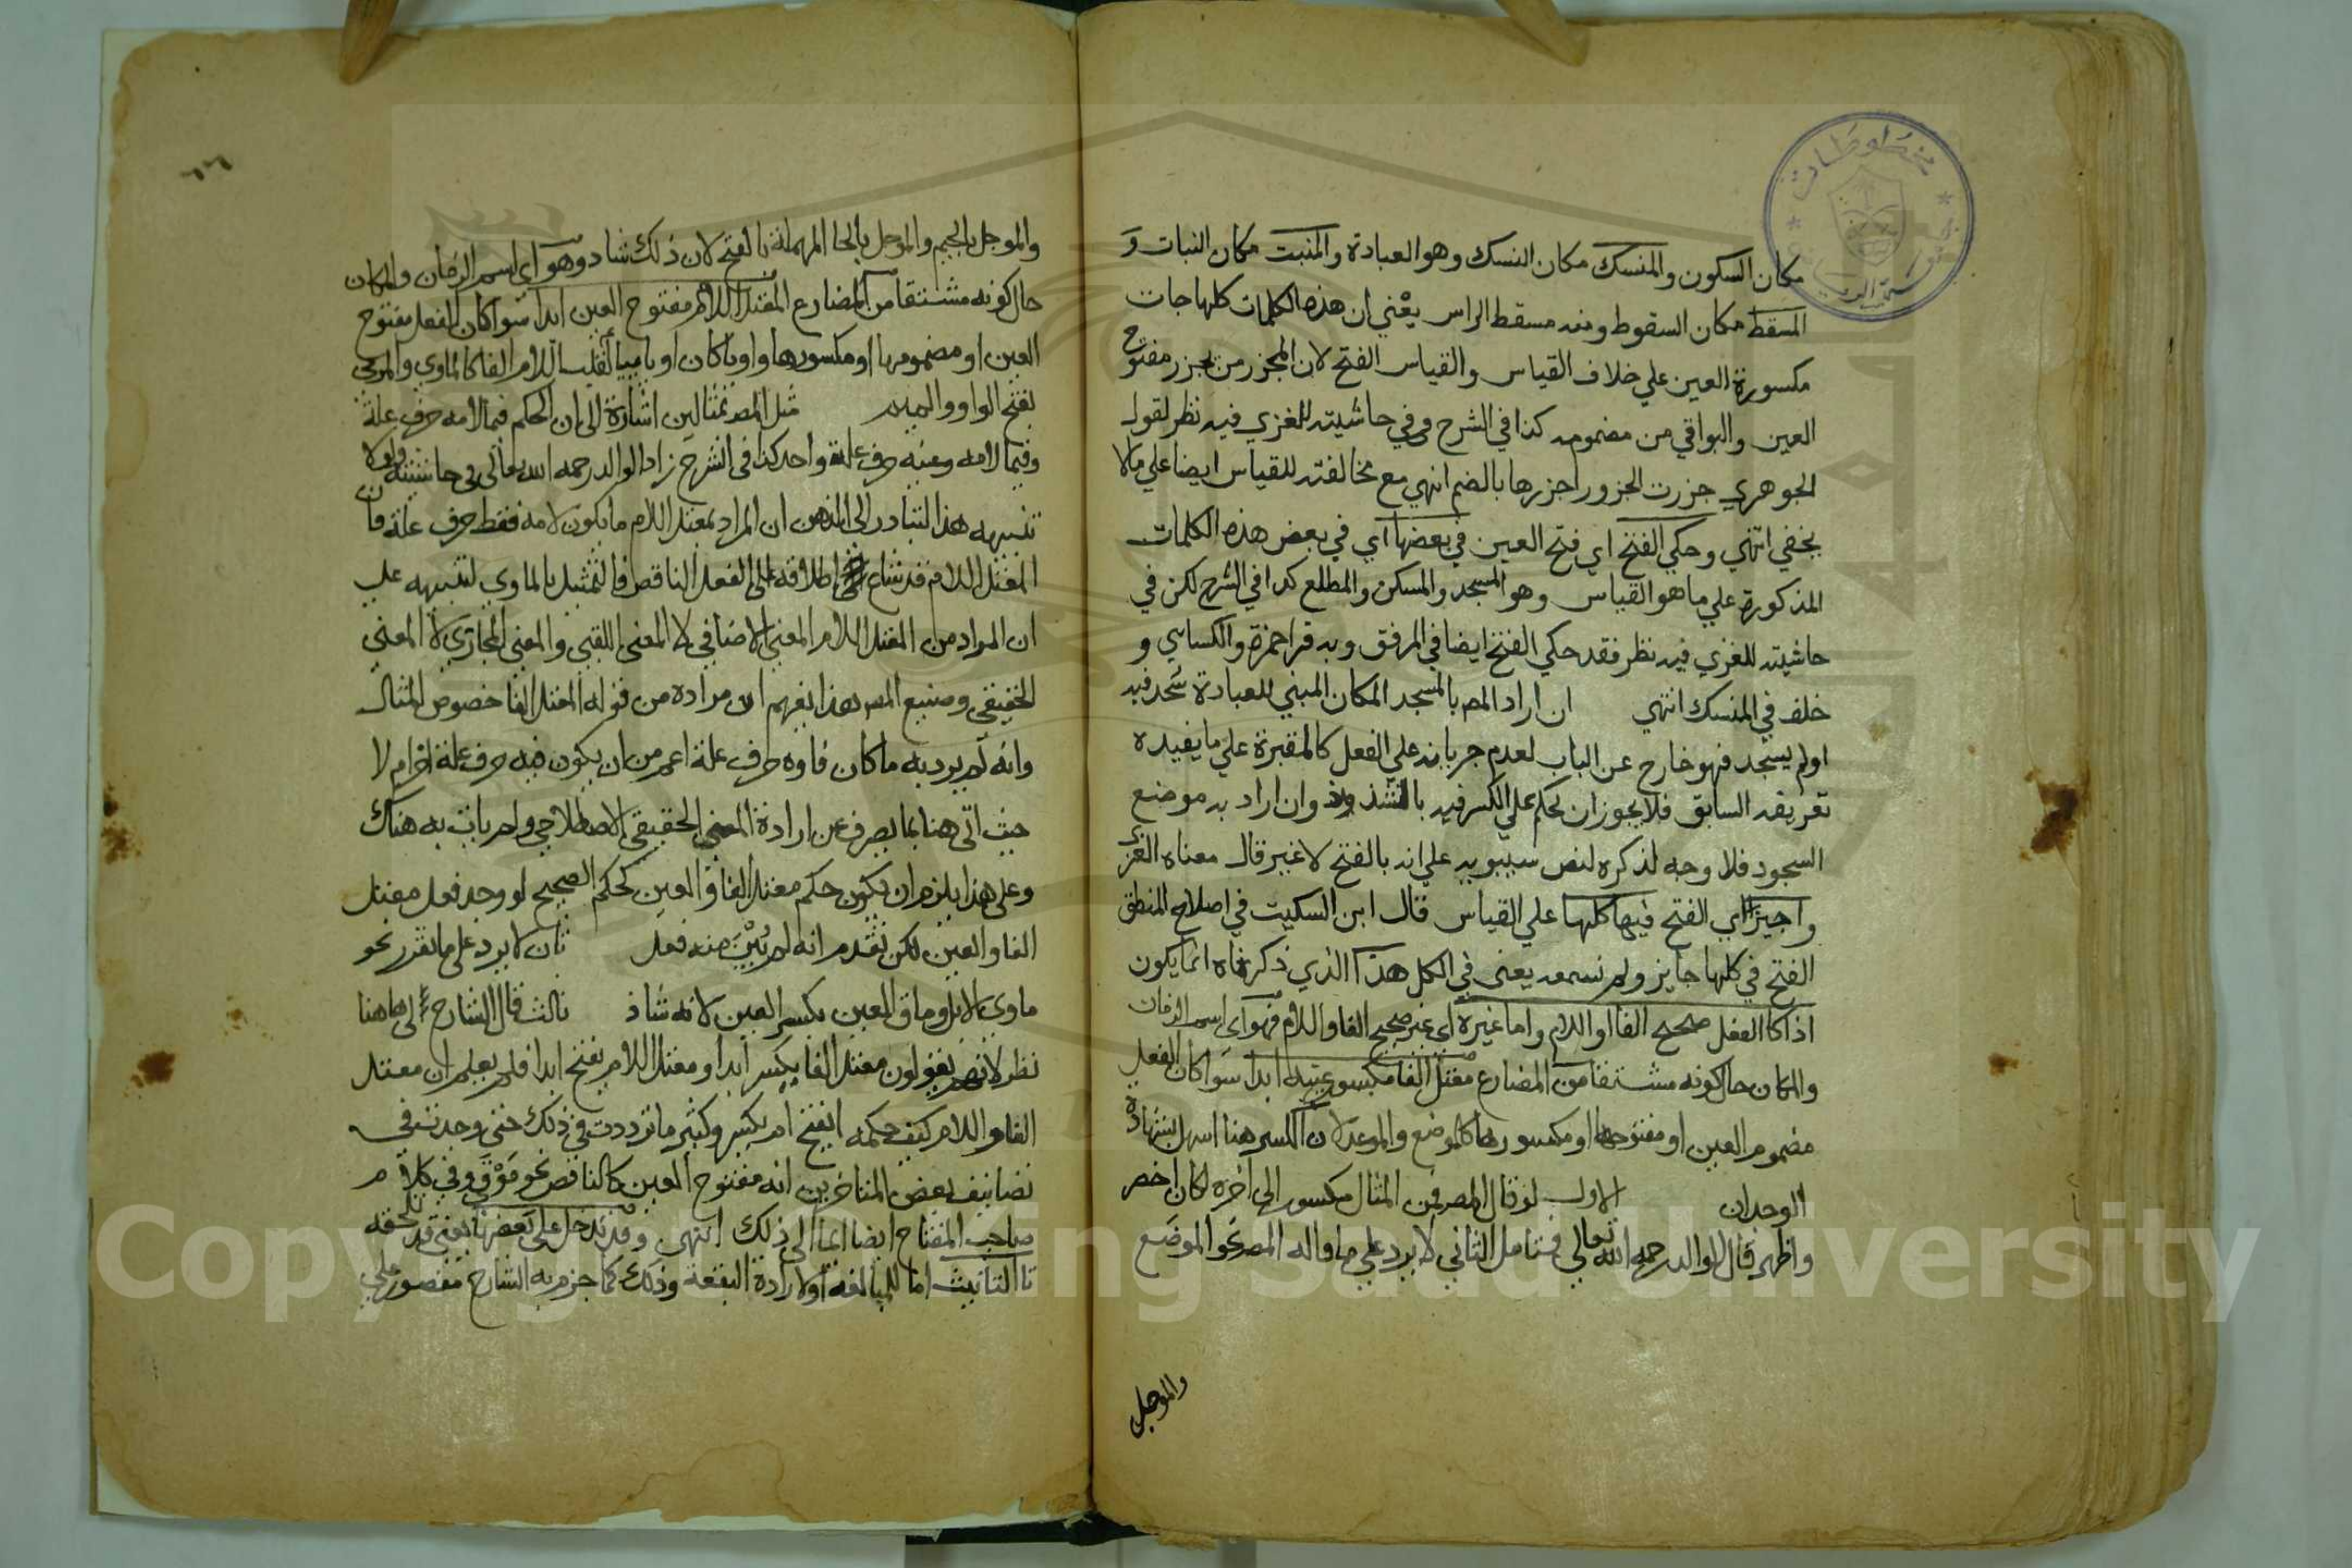 مكان السكون والمنسك مكان النسك وهو العبادة والمنبت مكان النبات و
المسقط مكان السقوط ومنه مسقط الراس يعني ان هذه الكلمات كلها جات
مكسورة العين علي خلاف القياس والقياس الفتح لان المجزر من يجزر مفتوح
العين والبواقي من مضمومه كذا في الشرح وفي حاشيته للغزي فيه نظر لقول
الجوهري جزرت الجزور اجزرها بالضم انهي مع مخالفته للقياس ايضا علي مالا
يخفي انتهي وحكي الفتح اي فتح العين في بعضها اي في بعض هذه الكلمات
المذكورة علي ما هو القياس وهو المسجد والمسكن والمطلع كذا في الشرح لكن في
حاشيته للغزي فيه نظر فقد حكي الفتح ايضا في المرفق وبه قرا حمزة والكسائي و
خلف في المنسك انتهي ان اراد المص بالمسجد المكان المبني للعبادة سجد فيه
اولم يسجد فهو خارج عن الباب لعدم جريانه علي الفعل كالمقبرة علي ما يفيده
تعريفه السابق فلا يجوز ان يحكم علي الكسر فيه بالشذوذ وان اراد به موضع
السجود فلا وجه لذكره لنص سيبويه علي انه بالفتح لا غير قال معناه الغزي
واجيز اي الفتح فيها كلها علي القياس قال ابن السكيت في اصلاح المنطق
الفتح في كلها جايز ولم نسمعه يعني في الكل هذا الذي ذكرناه انما يكون
اذا كا الفعل صحيح الفا او اللام واما غيره اي غير صحيح الفا واللام فهو اي اسم الزمان
والمكان حال كونه مشتقا من المضارع معتل الفا مكسور عينه ابدا سوا كان الفعل
مضموم العين او مفتوحها او مكسورها كالموضع والموعد لان الكسر هنا اسهل بشهادة
الوجدان الاول لو قال المص فمن المثال مكسور الي اخره لكان اخصر
واظهر قال الوالد رحمه الله تعالي فتامل الثاني لا يرد علي ما قاله المص نحو الموضع
والموجل
والموجل بالجيم والموحل بالحا المهملة بالفتح لان ذلك شاد وهو اي اسم الزمان والمكان
حال كونه مشتقا من المضارع المعتل اللام مفتوح العين ابدا سوا كان الفعل مفتوح
العين او مضمومها او مكسورها واويا كان او يابيا لقلب اللام الفا كالماوي والمرمي
بفتح الواو والميم مثل المص بمثالين اشارة الى ان الحكم فيما لامه حرف علة
وفيما لامه وعينه حرف علة واحد كذا في الشرح زاد الوالد رحمه الله تعالى في حاشيته
تنبيهه هذا التبادر الى الذهن ان المراد بمعتل اللام ما يكون لامه فقط حرف علة فان
المعتل اللام قد شاع اطلاقه على الفعل الناقص فالتمثيل بالماوي لتنبيهه علي
ان المراد من المعتل اللام المعنى الاضافي لا المعنى اللقبي والمعنى المجازي لا المعني
الحقيقي وصنيع المص بهذا يفهم ان مراده من قوله المعتل الفا خصوص المثال
وانه لم يرد به ما كان فاوه حرف علة اعم من ان يكون فيه حرف علة اخر ام لا
حيث اتى هنا بما يصرف عن ارادة المعنى الحقيقي الاصطلاحي ولم يات به هناك
وعلى هذا يلزم ان يكون حكم معتل الفا والعين كحكم الصحيح لو وجد فعل معتل
الفا والعين لكن تقدم انه لم يبن منه فعل ثان لا يرد على ما تقرر نحو
ماوي الابل وماقي العين بكسر العين لانه شاذ ثالث قال الشارح الى هاهنا
نظر لانهم يقولون معتل الفا يكسر ابدا ومعتل اللام يفتح ابدا فلم يعلم ان معتل
الفا واللام كيف حكمه ايفتح ام يكسر وكثير ما ترددت في ذلك حتى وجدته في
تصانيف بعض المتاخرين انه مفتوح العين كالناقص نحو موقي وفي كلام
صاحب المفتاح ايضا ايما الى ذلك انتهي وقد تدخل على بعضها يعني قد تلحقه
تا التانيث اما للمبالغة او لارادة البقعة وذلك كما جزم به الشارح مقصور علي